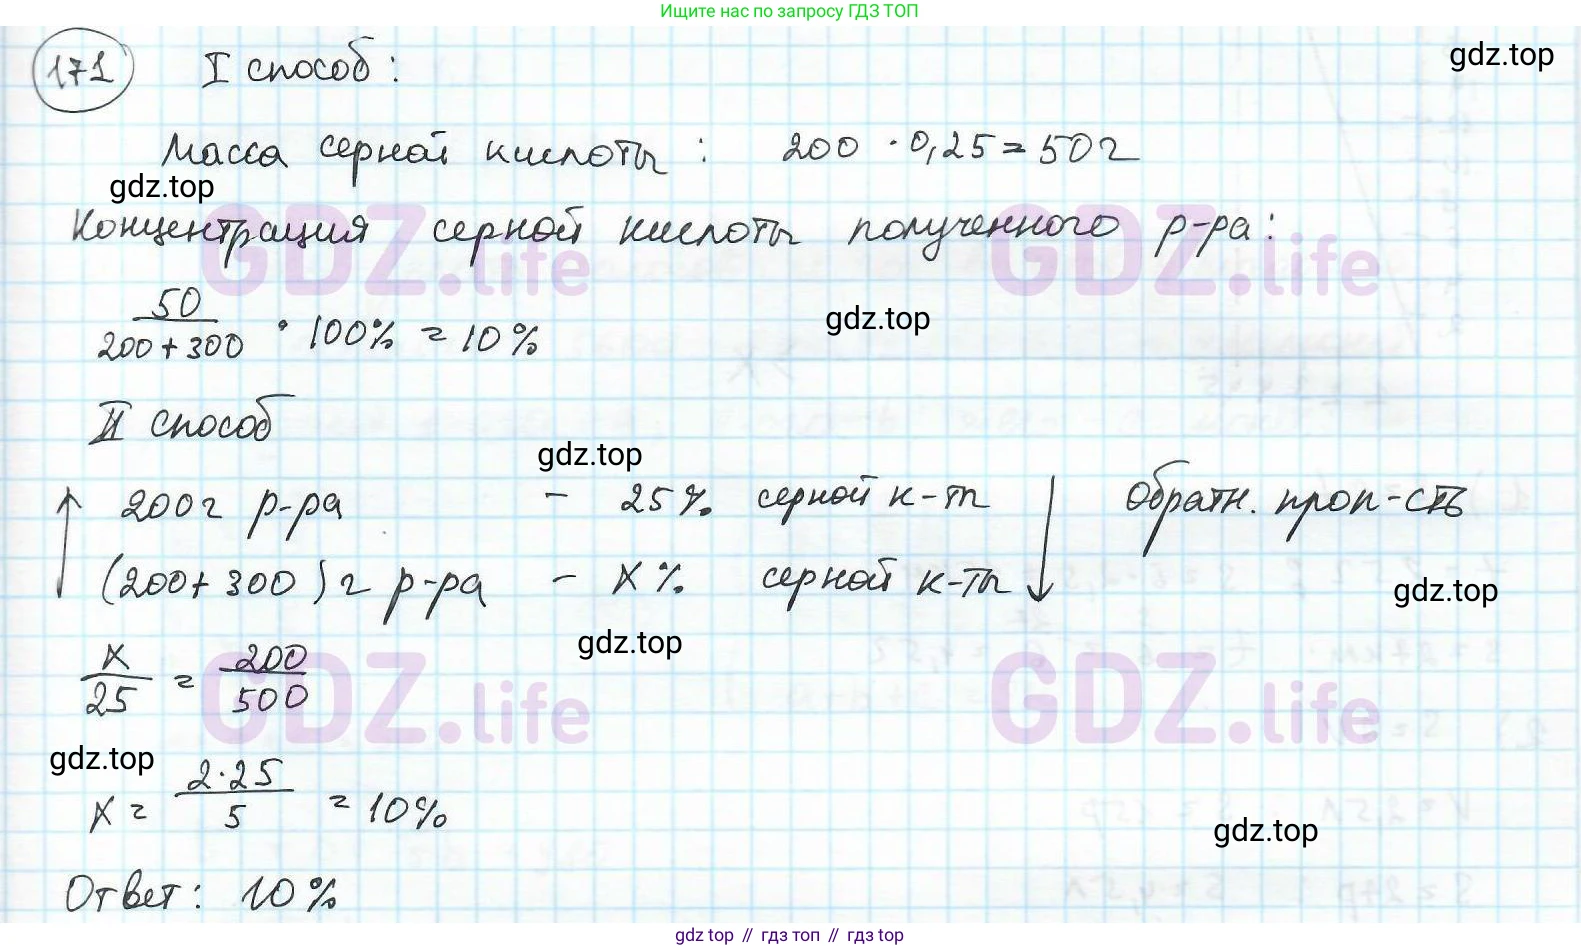 Ищите нас по запросу ГДЗ ТОП
171 I способ:
gdz.top
Масса серной кислоты: 200 · 0,25 = 50 г
gdz.top
Концентрация серной кислоты полученного р-ра:
GDZ.life GDZ.life
50
200+300 · 100% = 10%
gdz.top
II способ
gdz.top
200 г р-ра – 25% серной к-ты обратн. проп-сть
(200+300) г р-ра – x% серной к-ты
gdz.top
gdz.top
x/25 = 200/500
GDZ.life GDZ.life
gdz.top
x = 2·25/5 = 10%
gdz.top
Ответ: 10%
gdz.top // гдз топ // гдз top